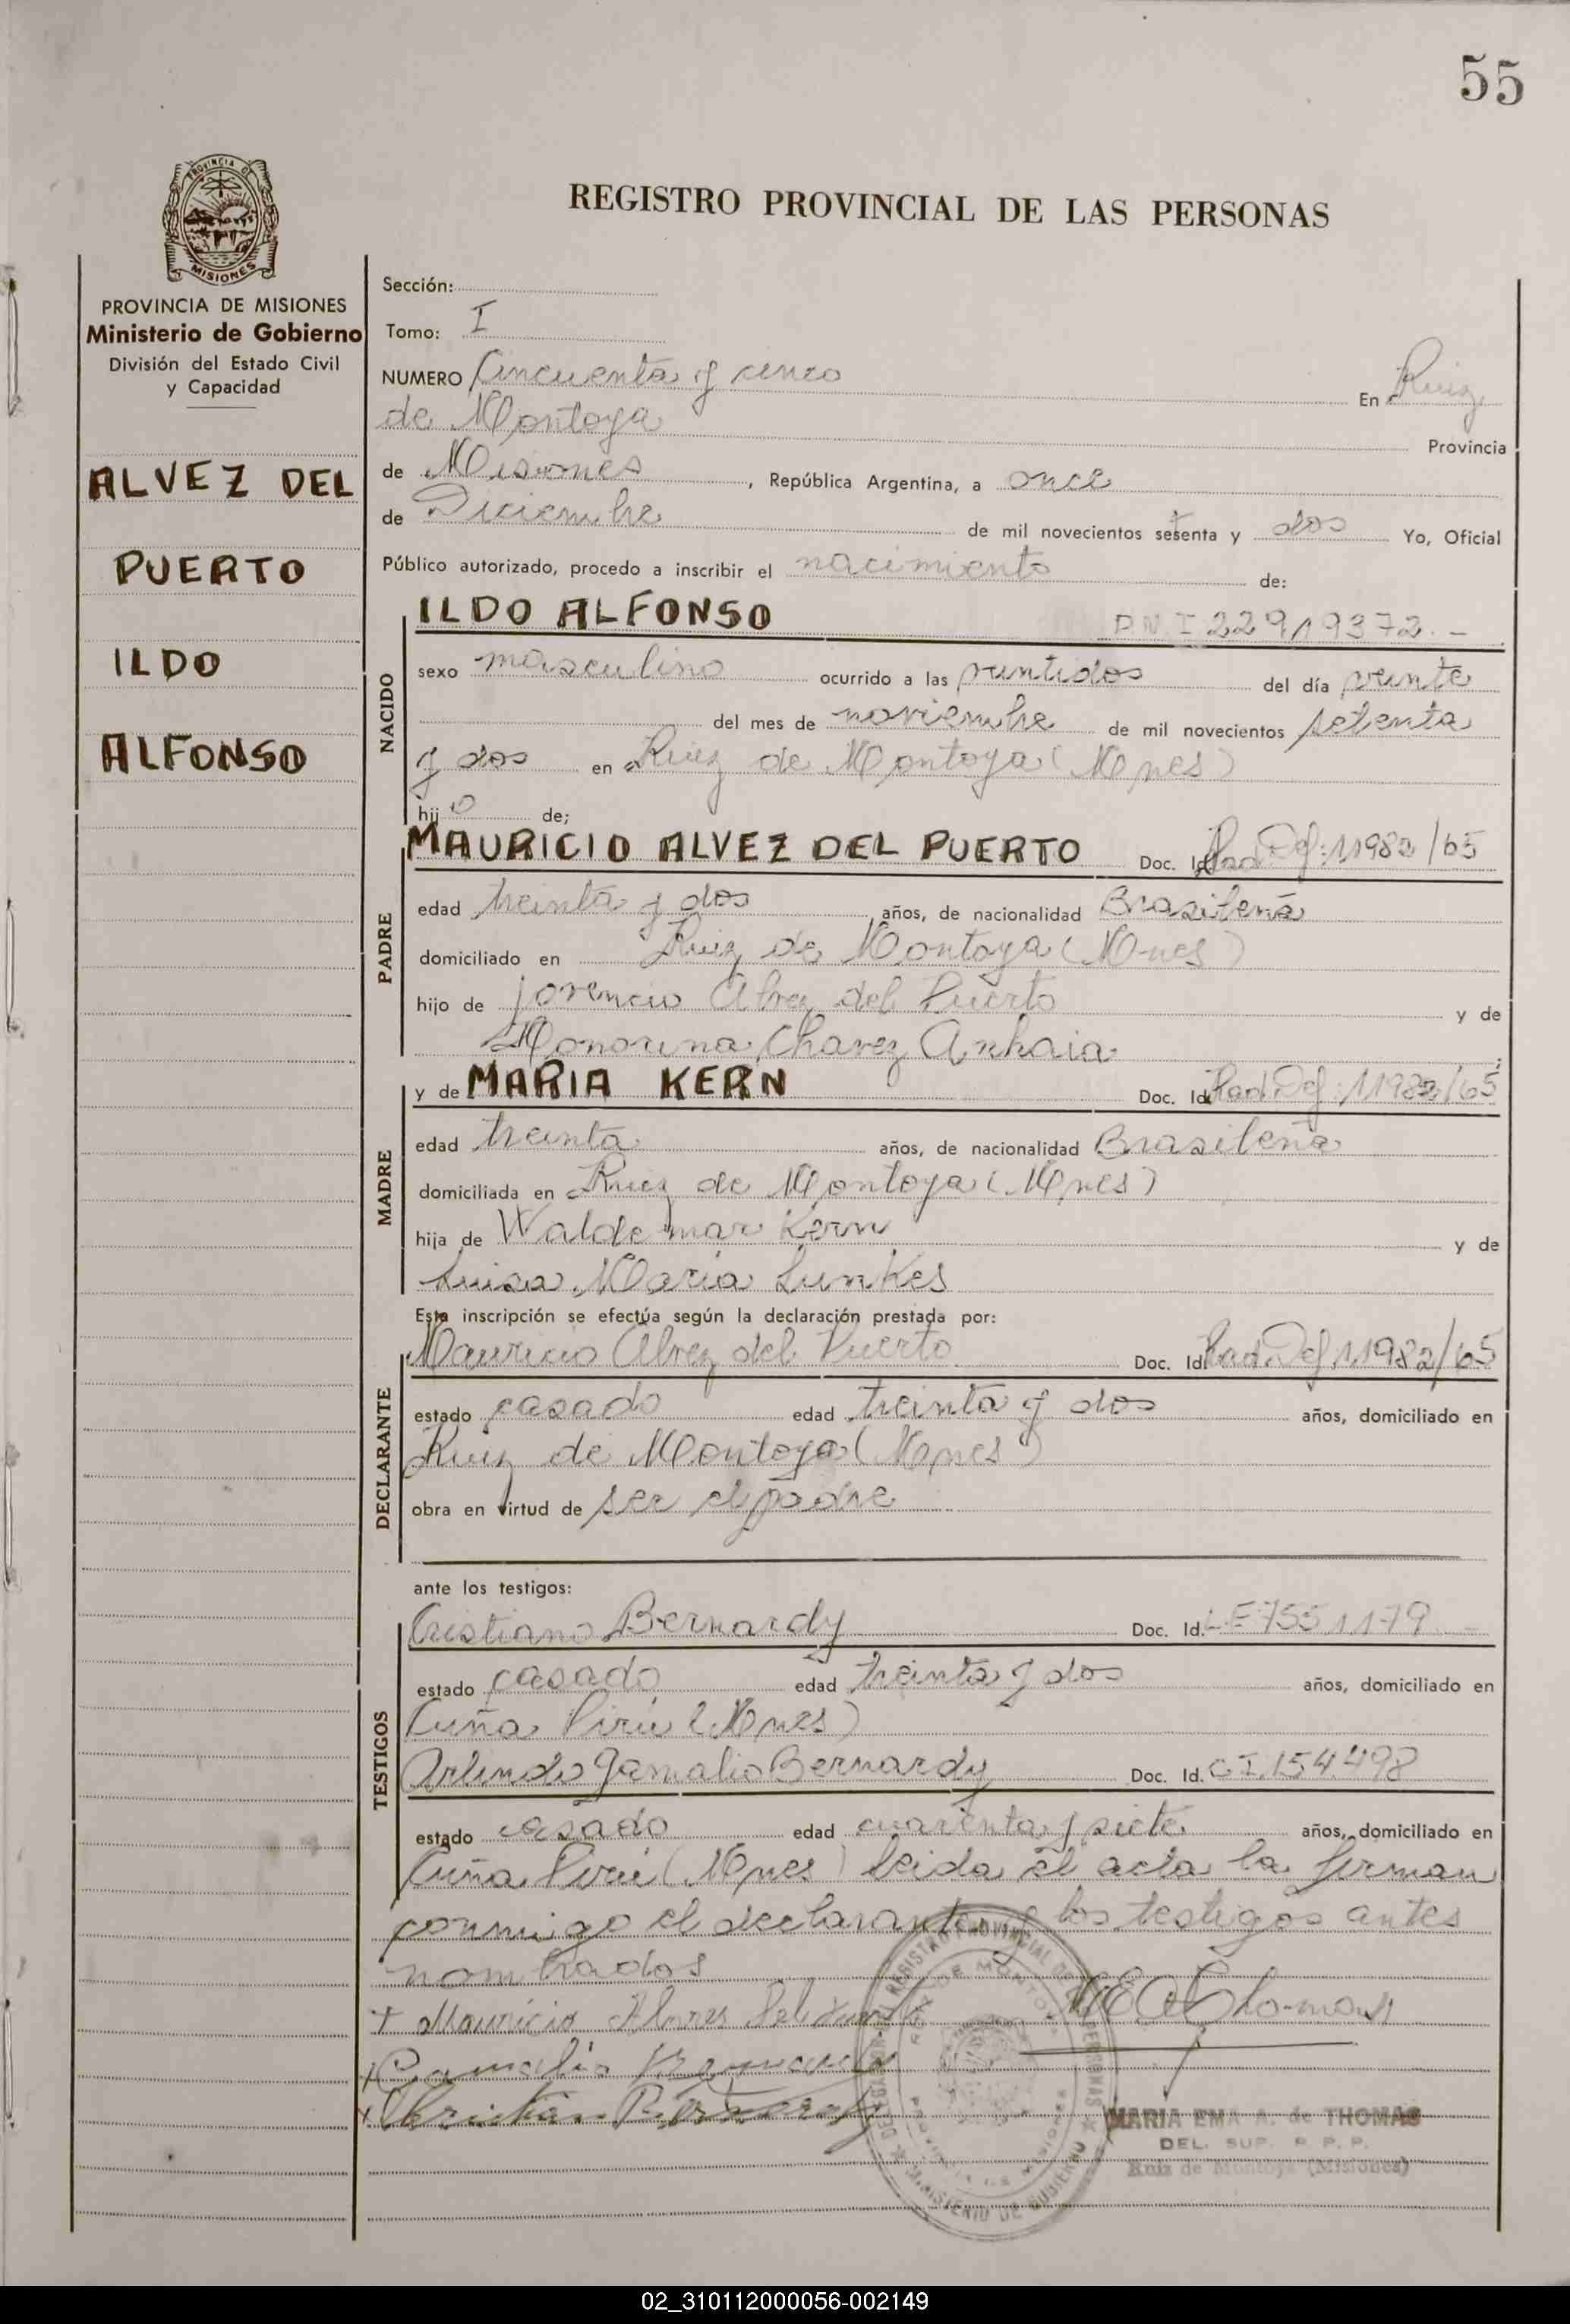 55
PROVINCIA DE
MISIONES
REGISTRO PROVINCIAL DE LAS PERSONAS
PROVINCIA DE MISIONES
Ministerio de Gobierno
División del Estado Civil
y Capacidad
ALVEZ DEL
PUERTO
ILDO
ALFONSO
Sección:
Tomo: I
NUMERO Cincuenta y cinco En Ruiz
de Montoya Provincia
de Misiones, República Argentina, a once
de Diciembre de mil novecientos setenta y dos Yo, Oficial
Público autorizado, procedo a inscribir el nacimiento de:
NACIDO
ILDO ALFONSO DNI 22919372.-
sexo masculino ocurrido a las veintidos del día veinte
del mes de noviembre de mil novecientos setenta
y dos en Ruiz de Montoya (Mnes)
hijo de;
PADRE
MAURICIO ALVEZ DEL PUERTO Doc. Id. Rad Def: 11982/65
edad treinta y dos años, de nacionalidad Brasileña
domiciliado en Ruiz de Montoya (Mnes)
hijo de Alvez del Puerto y de
Honorina Chavez Anhaia
MADRE
y de MARIA KERN Doc. Id. Rad. Def: 11982/65
edad treinta años, de nacionalidad Brasileña
domiciliada en Ruiz de Montoya (Mnes)
hija de Waldemar Kern y de
Luisa Maria Lunkes
Esta inscripción se efectúa según la declaración prestada por:
DECLARANTE
Mauricio Alvez del Puerto Doc. Id. Rad Def 11982/65
estado casado edad treinta y dos años, domiciliado en
Ruiz de Montoya (Mnes)
obra en virtud de ser el padre
ante los testigos:
TESTIGOS
Cristiano Bernardy Doc. Id. LE 7551179
estado casado edad treinta y dos años, domiciliado en
Cuña Pirú (Mnes)
Arlindo Gamalio Bernardy Doc. Id. CI.154.498
estado casado edad cuarenta y siete años, domiciliado en
Cuña Pirú (Mnes) leida el acta la firman
conmigo el declarante y los testigos antes
nombrados
+ Mauricio Alvares Del Puerto
MARIA EMA A. de THOMAS
DEL. SUP. R. P. P.
Ruiz de Montoya (Misiones)
02_310112000056-002149